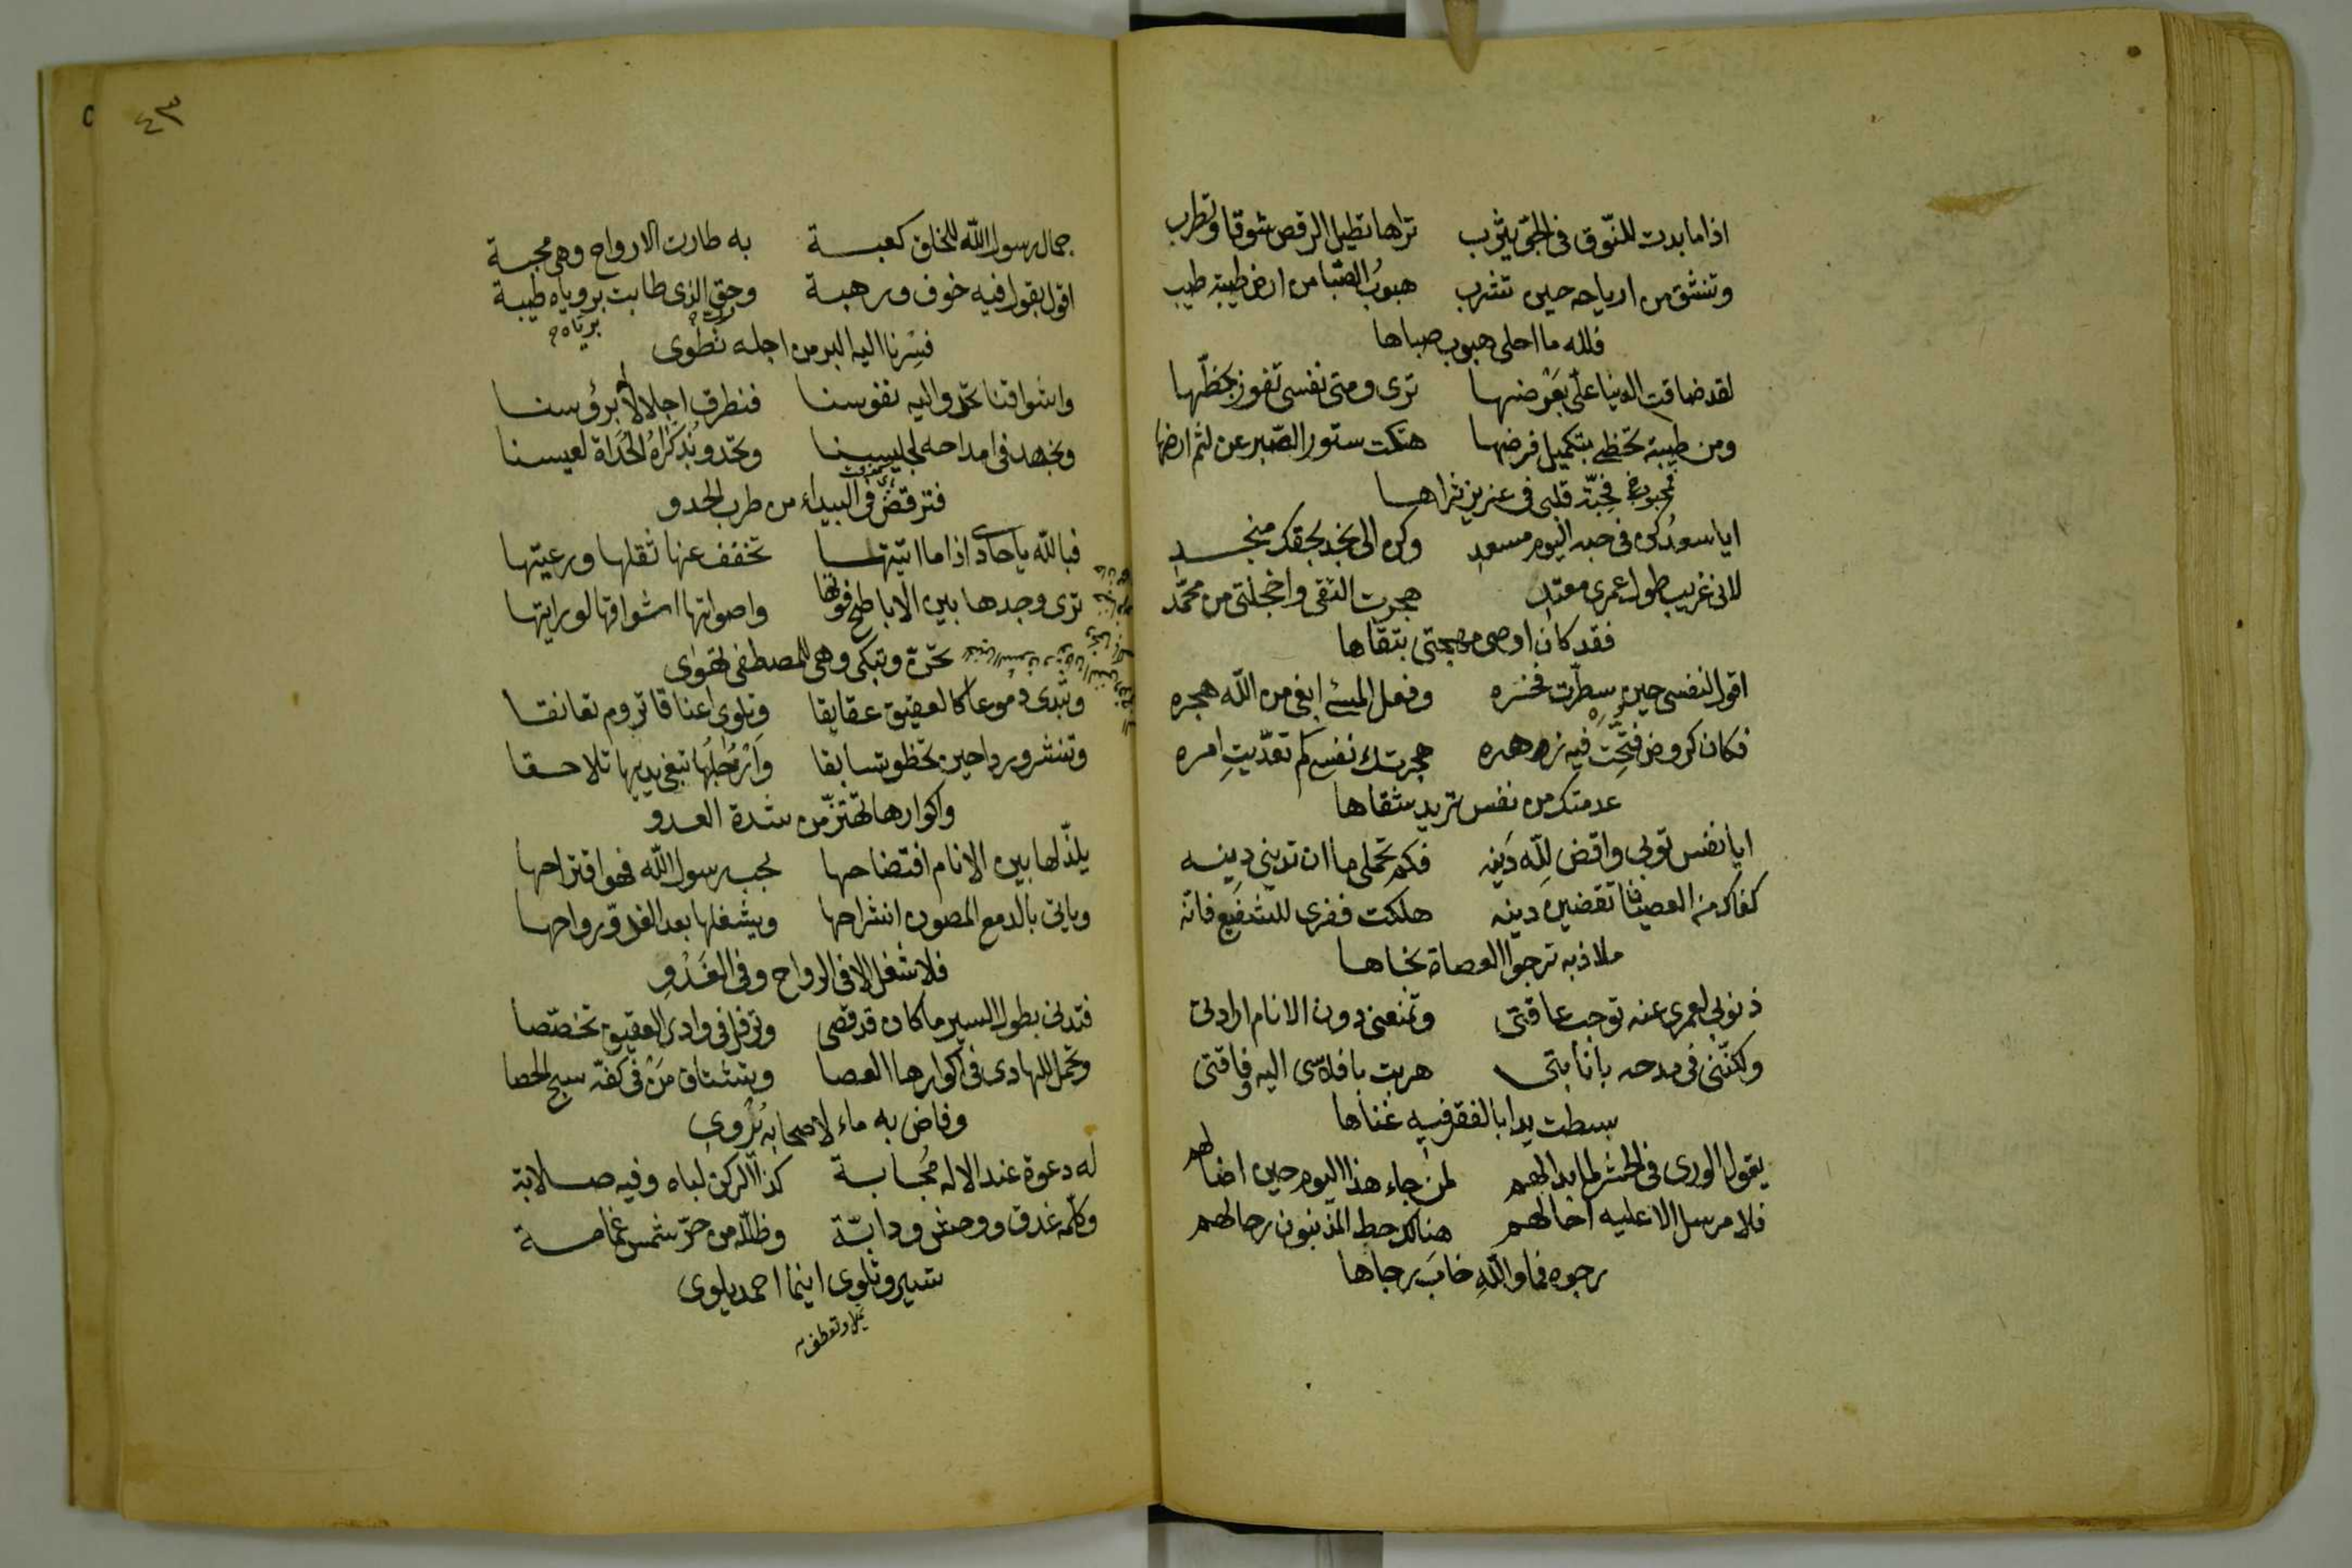 اذا ما بدت للنوق في الجو يثرب تراها تطيل الرقص شوقا وتطرب
وتنشق من ارياحه حين تشرب هبوب الصبا من ارض طيبة طيب
فلله ما احلى هبوب صباها
لقد ضاقت الدنيا علي بعرضها ترى ومتى نفسي تفوز بحظها
ومن طيبة تحظى بتكميل فرضها هتكت ستور الصبر عن لثم ارضها
فحبة قلبي في عزيز ثراها
ايا سعد كن في حبه اليوم مسعد وكن الى نجد بحقك منجد
لاني غريب طول عمري معتد هجرت التقى واخجلتي من محمد
فقد كان اوصى مهجتي بتقاها
اقول لنفسي حين سطرت فخره وفعل المسئ ابغى من الله هجره
فكان كروض فتحت فيه زهره هجرتك نفس كم تعديت امره
عدمتك من نفس تريد شقاها
ايا نفس توبي واقض لله دينه فكم تحملي ما ان تديني دينه
كفاك من العصيان تقضين دينه هلكت ففري للشفيع فانه
ملاذ به ترجوا العصاة نجاها
ذنوبي لعمري عنه توجب عاقتي وتمنعني دون الانام ارادتي
ولكنني في مدحه بانابتي هربت بافلاسي اليه وفاقتي
بسطت يدا بالفقر فيه غناها
يقول الورى في الحشر لما بدا لهم لمن جاء هذا اليوم حين اضالهم
فلا مرسل الا عليه احالهم هنالك حط المذنبون رحالهم
رجوه فما والله خاب رجاها
٤٣
جمال رسول الله للخلق كعبة به طارت الارواح وهي محبة
اقول بقول فيه خوف ورهبة وحق الذي طابت بروياه طيبة
برياه
فسرنا اليه البر من اجله نطوى
واشواقنا تحدو اليه نفوسنا فنطرق اجلالا له برؤسنا
ونجهد في امداحه لجليسنا وتحدو بذكراه الحداة لعيسنا
فترقض في البيداء من طرب الحدو
فبالله يا حادي اذا ما اتيتها تخفف عنها ثقلها ورعيتها
ترى وجدها بين الاباطح فوتها واصواتها اشواقها لو رايتها
تحن وتبكي وهي للمصطفى تهوى
وتبدى دموعا كالعقيق عقايقا وتلوى اعناقا تروم تعانقا
وتنشر وردا حين تخطو تسابقا وارجلها تبغي يديها تلاحقا
واكوارها تهتز من شدة العدو
يلذ لها بين الانام افتضاحها بحب رسول الله فهو اقتراحها
وياتي بالدمع المصون انشراحها ويشغلها بعد الغدو رواحها
فلا شغل الا في الرواح وفي الغدو
فتدني بطول السير ما كان قد قصى وترفل في وادي العقيق تخصصا
وتحمل للهادي في اكوارها العصا وتشتاق من في كفه سبح الحصا
وفاض به ماء لاصحابه يروى
له دعوة عند الاله مجابة كذا الركن لباه وفيه صلابة
وكلمه عذق ووحش ودابة وظلله من حر شمس غمامة
تسير وتلوى اينما احمد يلوى
تميل وتعطف